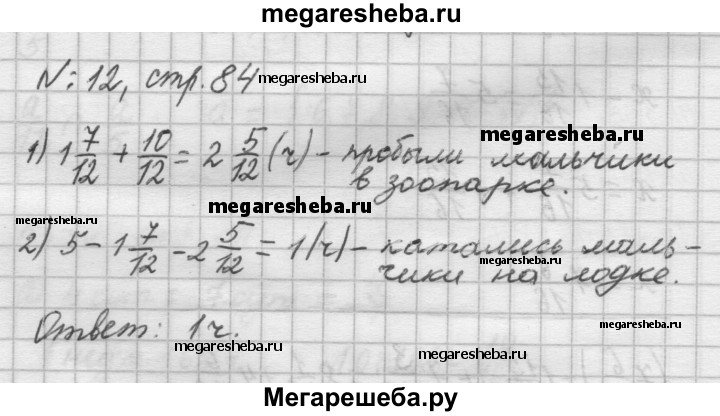 megaresheba.ru
N: 12, стр. 84 megaresheba.ru
megaresheba.ru
1) 1 7/12 + 10/12 = 2 5/12 (ч) - пробыли мальчики
в зоопарке.
megaresheba.ru
megaresheba.ru
2) 5 - 1 7/12 - 2 5/12 = 1 (ч) - катались маль-
megaresheba.ru
чики на лодке.
Ответ: 1 ч.
megaresheba.ru
megaresheba.ru
megaresheba.ru
Мегарешеба.ру